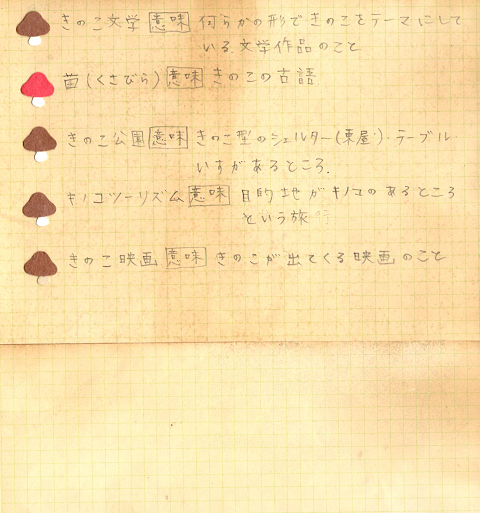 きのこ文学 意味 何らかの形できのこをテーマにして
いる文学作品のこと
茸(くさびら) 意味 きのこの古語
きのこ公園 意味 きのこ型のシェルター(東屋)・テーブル・
いすがあるところ.
キノコツーリズム 意味 目的地がキノコのあるところ
という旅行
きのこ映画 意味 きのこが出てくる映画のこと